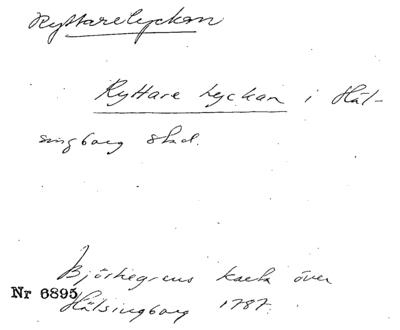 Ryttarelyckan
Ryttare Lyckan i Häl-
singborg stad.
Björkegrens karta över
Nr 6895
Hälsingborg 1787.